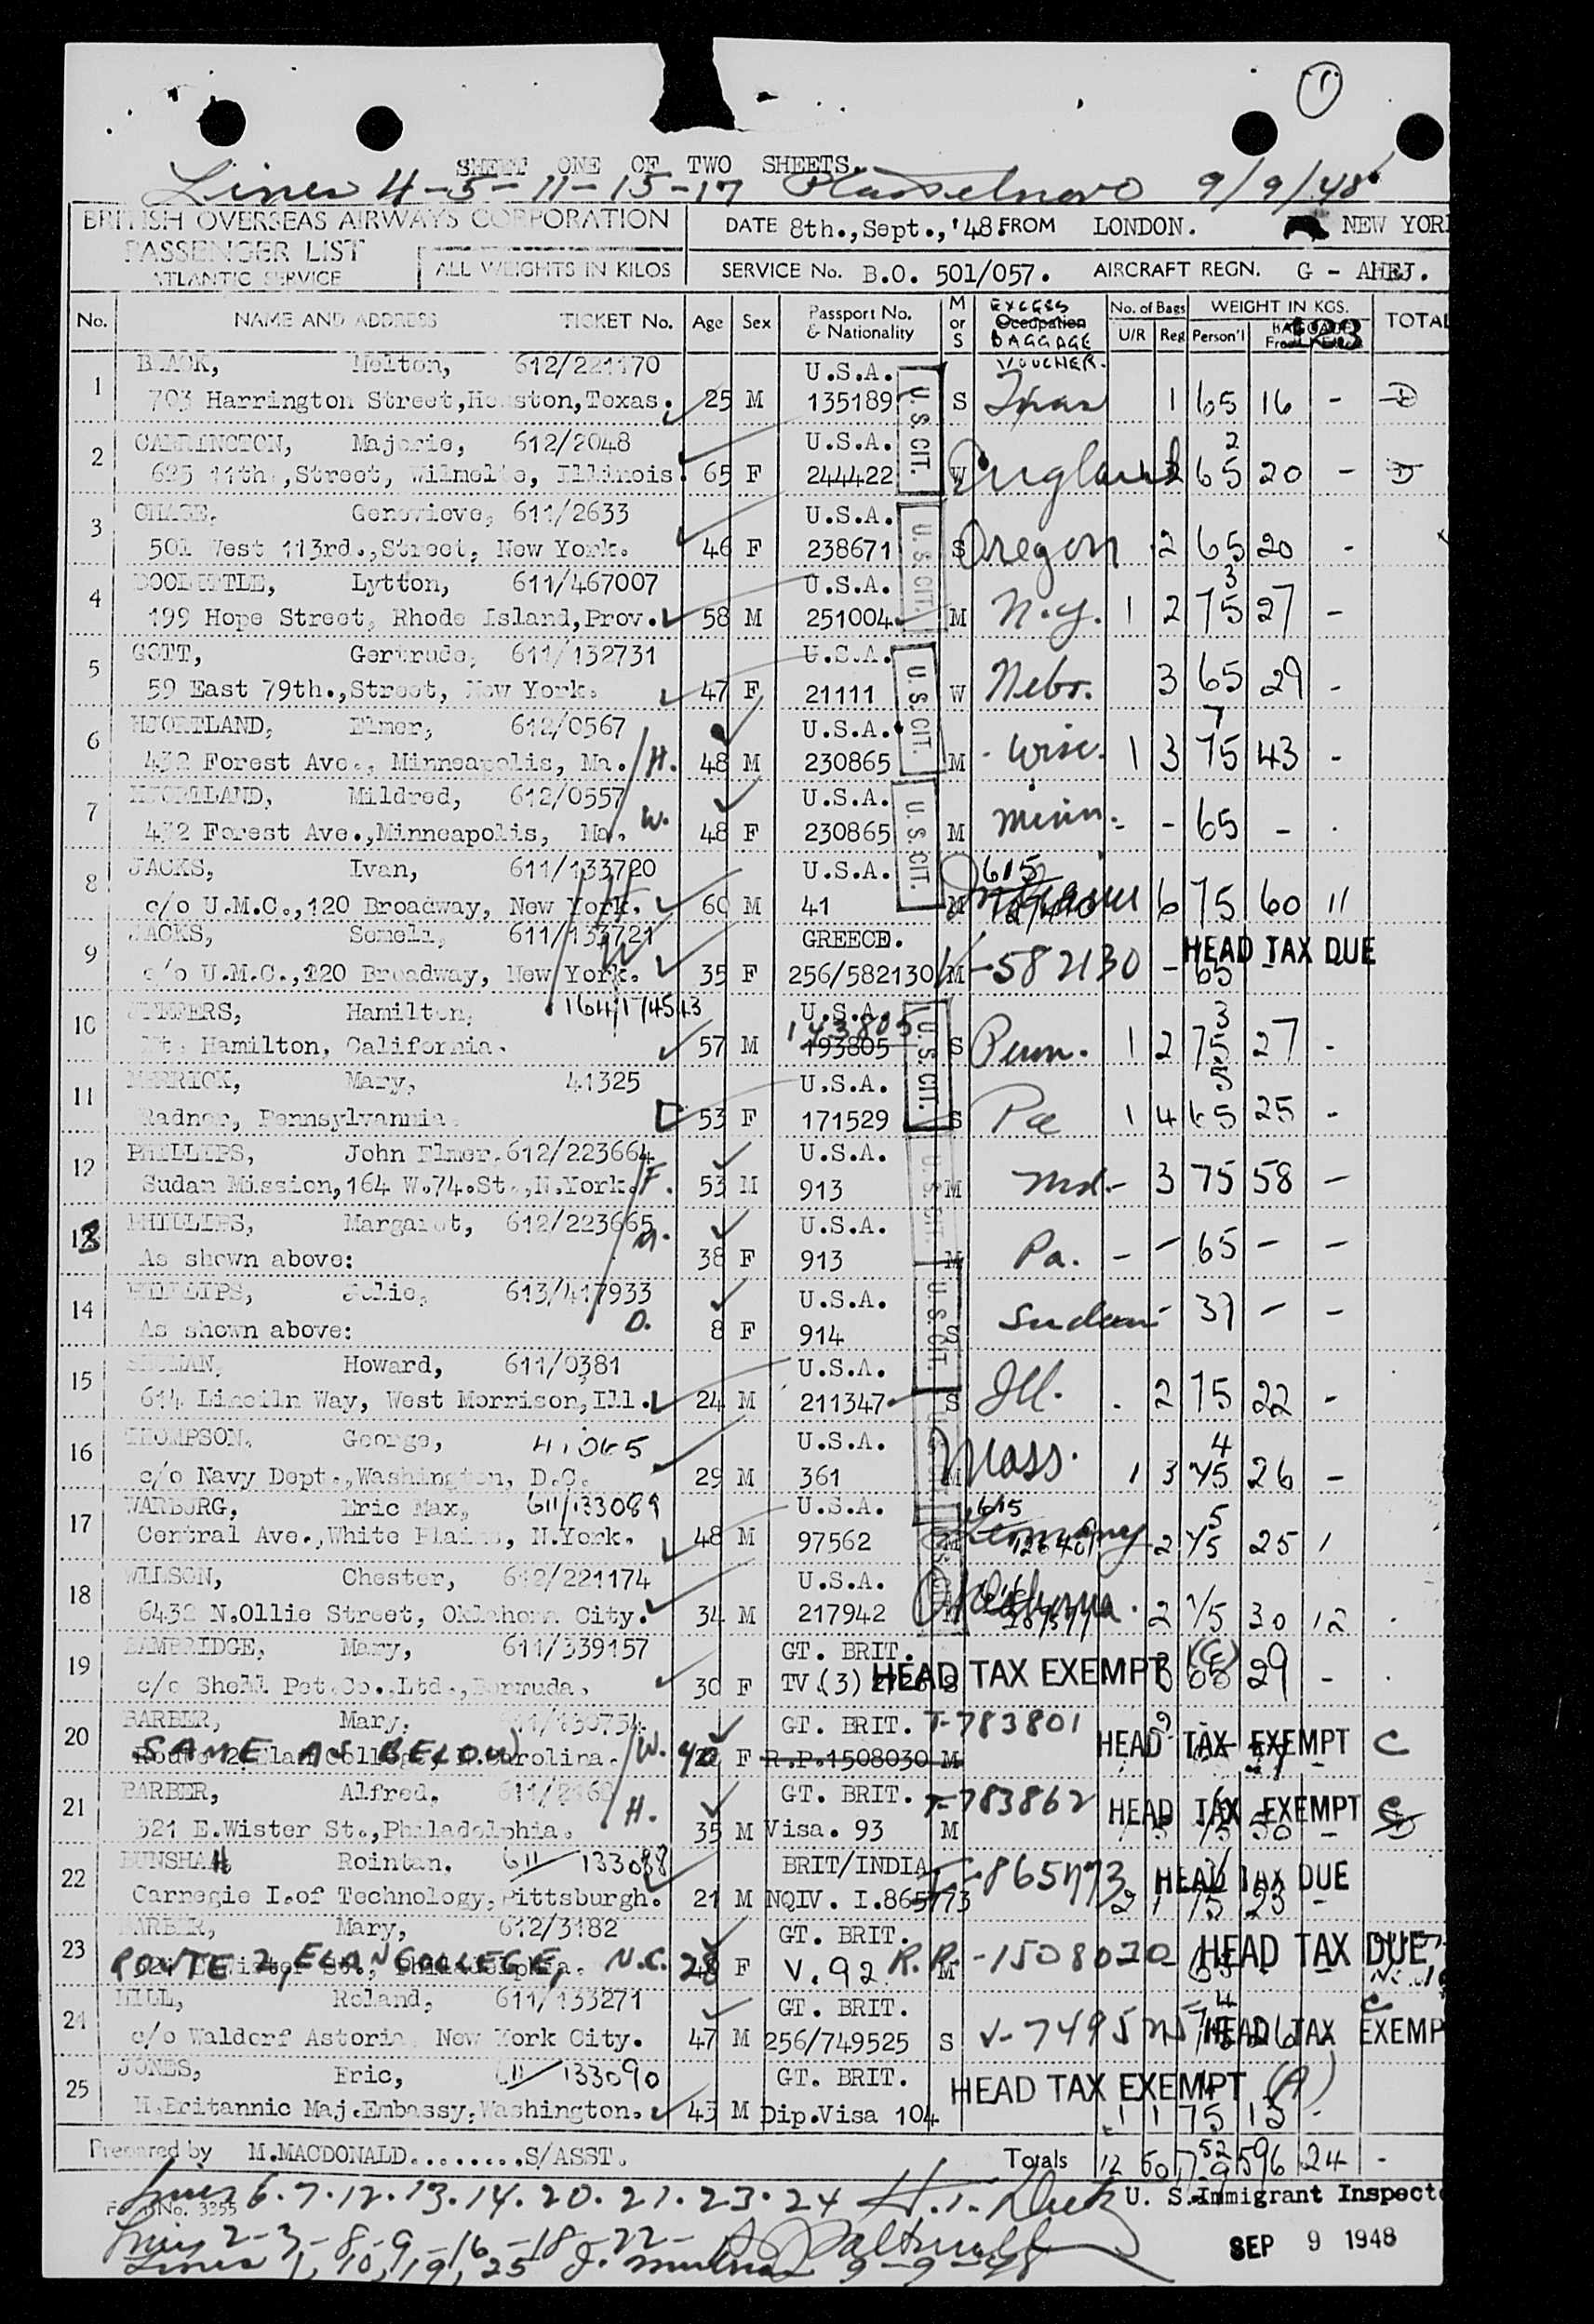 1
SHEET ONE OF TWO SHEETS.
Lines 4-5-11-15-17 9/9/48
BRITISH OVERSEAS AIRWAYS CORPORATION
PASSENGER LIST
ATLANTIC SERVICE
ALL WEIGHTS IN KILOS
DATE 8th.,Sept.,'48. FROM LONDON. NEW YOR
SERVICE No. B.O. 501/057. AIRCRAFT REGN. G - AHEJ.
No. NAME AND ADDRESS TICKET No. Age Sex Passport No. & Nationality M or S Occupation EXCESS BAGGAGE VOUCHER. No. of Bags U/R Reg WEIGHT IN KGS. Person'l BAGGAGE 123 TOTAL
1 BLACK, Melton, 612/221170 U.S.A.
703 Harrington Street,Houston,Texas. 25 M 135189 S Texas 1 65 16 -
2 CARRINGTON, Majorie, 612/2048 U.S.A. 2
625 11th.,Street, Wilmette, Illinois. 65 F 244422 W England 65 20 -
3 CHASE, Genevieve, 611/2633 U.S.A.
501 West 113rd.,Street, New York. 46 F 238671 S Oregon 2 65 20 -
4 DOOLITTLE, Lytton, 611/467007 U.S.A. 3
199 Hope Street, Rhode Island,Prov. 58 M 251004 M N.Y. 1 2 75 27 -
5 GOTT, Gertrude, 611/132731 U.S.A.
59 East 79th.,Street, New York. 47 F 21111 W Nebr. 3 65 29 -
6 HJORTLAND, Elmer, 612/0567 U.S.A. 7
432 Forest Ave., Minneapolis, Ma. H. 48 M 230865 M Wisc. 1 3 75 43 -
7 HJORTLAND, Mildred, 612/0557 U.S.A.
432 Forest Ave.,Minneapolis, Ma. W. 48 F 230865 M Minn. - - 65 - .
8 JACKS, Ivan, 611/133720 U.S.A. 615
c/o U.M.C.,120 Broadway, New York. H 60 M 41 M 6 75 60 11
9 JACKS, Semeli, 611/133721 GREECE. HEAD TAX DUE
c/o U.M.C.,120 Broadway, New York. W 35 F 256/582130 M V-582130 - 65 -
10 JEFFERS, Hamilton, 164/174543 U.S.A. 143805 3
Mt. Hamilton, California. 57 M 193805 S Penn. 1 2 75 27 -
11 MERRICK, Mary, 41325 U.S.A. 5
Radnor, Pennsylvannia. 53 F 171529 S Pa 1 4 65 25 -
12 PHILLIPS, John Elmer, 612/223664 U.S.A.
Sudan Mission,164 W.74.St.,N.York. F. 53 M 913 M Md. - 3 75 58 -
13 PHILLIPS, Margaret, 612/223665 U.S.A.
As shown above: M. 38 F 913 M Pa. - - 65 - -
14 PHILLIPS, Julie, 613/417933 U.S.A.
As shown above: D. 8 F 914 S Sudan - 39 - -
15 SHUMAN, Howard, 611/0381 U.S.A.
614 Lincoln Way, West Morrison,Ill. 24 M 211347 S Ill. . 2 75 22 -
16 THOMPSON, George, 41065 U.S.A. 4
c/o Navy Dept.,Washington, D.C. 29 M 361 M Mass. 1 3 75 26 -
17 WARBURG, Eric Max, 611/133089 U.S.A. 615 5
Central Ave.,White Plains, N.York. 48 M 97562 M Germany 2 75 25 1
18 WILSON, Chester, 612/221174 U.S.A.
6432 N.Ollie Street, Oklahoma City. 34 M 217942 M Oklahoma. 2 75 30 12 .
19 BAMBRIDGE, Mary, 611/339157 GT. BRIT. HEAD TAX EXEMPT (C)
c/o Shell Pet.Co.,Ltd.,Bermuda. 30 F TV.(3) S 3 65 29 - .
20 BARBER, Mary, 611/130754 GT. BRIT. T-783801 HEAD TAX EXEMPT C
SAME AS BELOW W. 42 F R.P.1508030 M
21 BARBER, Alfred, GT. BRIT. T-783862 HEAD TAX EXEMPT C
521 E.Wister St.,Philadelphia. H. 35 M Visa. 93 M
22 DUNSHAH Rointan. 611/133088 BRIT/INDIA. HEAD TAX DUE
Carnegie I.of Technology,Pittsburgh. 21 M NQIV. I.865773 2 1 75 23 -
23 BARBER, Mary, 612/3182 GT. BRIT. HEAD TAX DUE
ROUTE 2, ELON COLLEGE, N.C. 28 F V.92 M R.P.-1508030
24 HILL, Roland, 611/133271 GT. BRIT. C
c/o Waldorf Astoria, New York City. 47 M 256/749525 S V-749525 HEAD TAX EXEMP
25 JONES, Eric, 611/133090 GT. BRIT. HEAD TAX EXEMPT (A)
H.Britannic Maj.Embassy,Washington. 43 M Dip.Visa 104 1 1 75 15 -
U.S. CIT.
U.S. CIT.
U.S. CIT.
U.S. CIT.
U.S. CIT.
U.S. CIT.
U.S. CIT.
U.S. CIT.
Prepared by M.MACDONALD.........S/ASST. Totals 12 60 52 596 24 -
Lines 6.7.12.13.14.20.21.23.24 U. S. Immigrant Inspect
Form No. 3355
Lines 2-3-8-9-16-18-22-
Lines 1, 10, 19, 25 9-9-48
SEP 9 1948